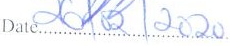 Date 26/02/2020